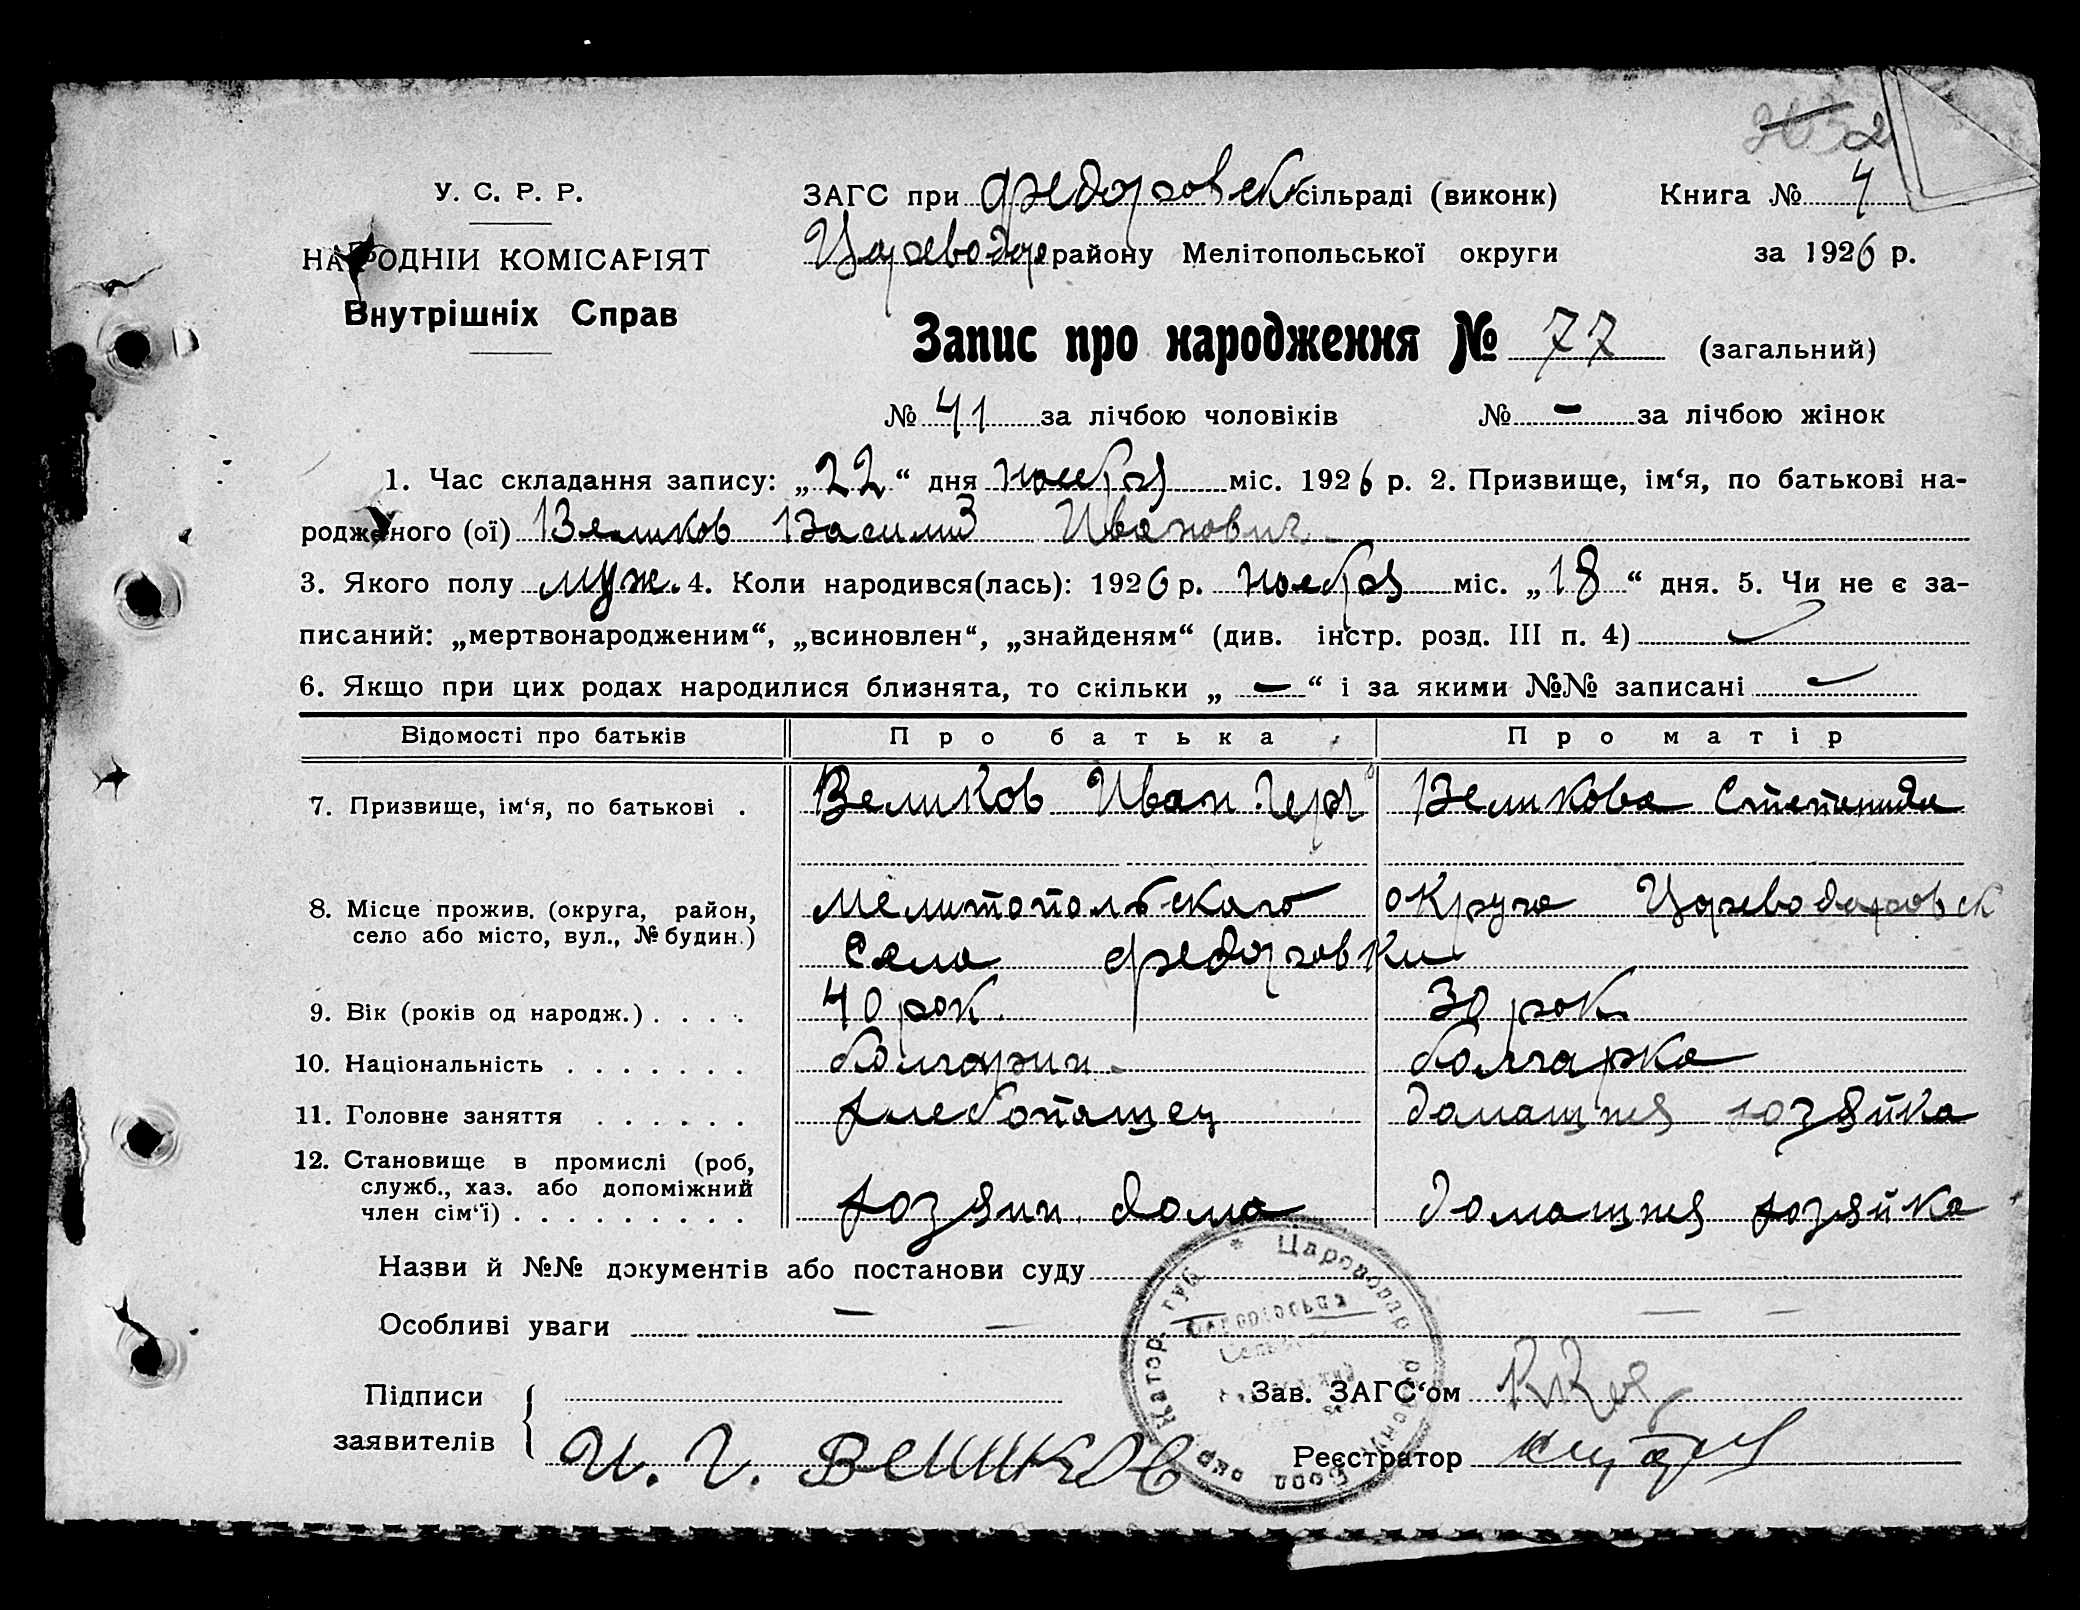 У. С. Р. Р.
НАРОДНІЙ КОМІСАРІЯТ
Внутрішніх Справ
ЗАГС при Федоровск сільраді (виконк)
Книга № 4
Цареводар району Мелітопольської округи
за 1926 р.
Запис про народження № 77 (загальний)
№ 41 за лічбою чоловіків № – за лічбою жінок
1. Час складання запису: „22“ дня ноября міс. 1926 р. 2. Призвище, ім‘я, по батькові на-
родженого (ої) Великов Василий Иванович
3. Якого полу муж. 4. Коли народився(лась): 1926 р. ноября міс. „18“ дня. 5. Чи не є за-
писаний: „мертвонародженим“, „всиновлен“, „знайденям“ (див. інстр. розд. III п. 4)
6. Якщо при цих родах народилися близнята, то скільки „ – “ і за якими №№ записані
Відомості про батьків Про батька Про матір
7. Призвище, ім‘я, по батькові . Великов Иван Великова Степанида
8. Місце прожив. (округа, район, Мелитопольскаго округа Цареводаровск
село або місто, вул., № будин.) Села Федоровки
9. Вік (років од народж.) . . . . 40 рок. 30 рок.
10. Національність . . . . . . . болгарин. болгарка
11. Головне заняття . . . . . . хлебопашец домашняя хозяйка
12. Становище в промислі (роб,
служб., хаз. або допоміжний
член сім‘ї) . . . . . . . . . хозяин дома домашняя хозяйка
Назви й №№ документів або постанови суду
Особливі уваги
Підписи
Зав. ЗАГС‘ом
заявителів И. Г. Великов
Реєстратор